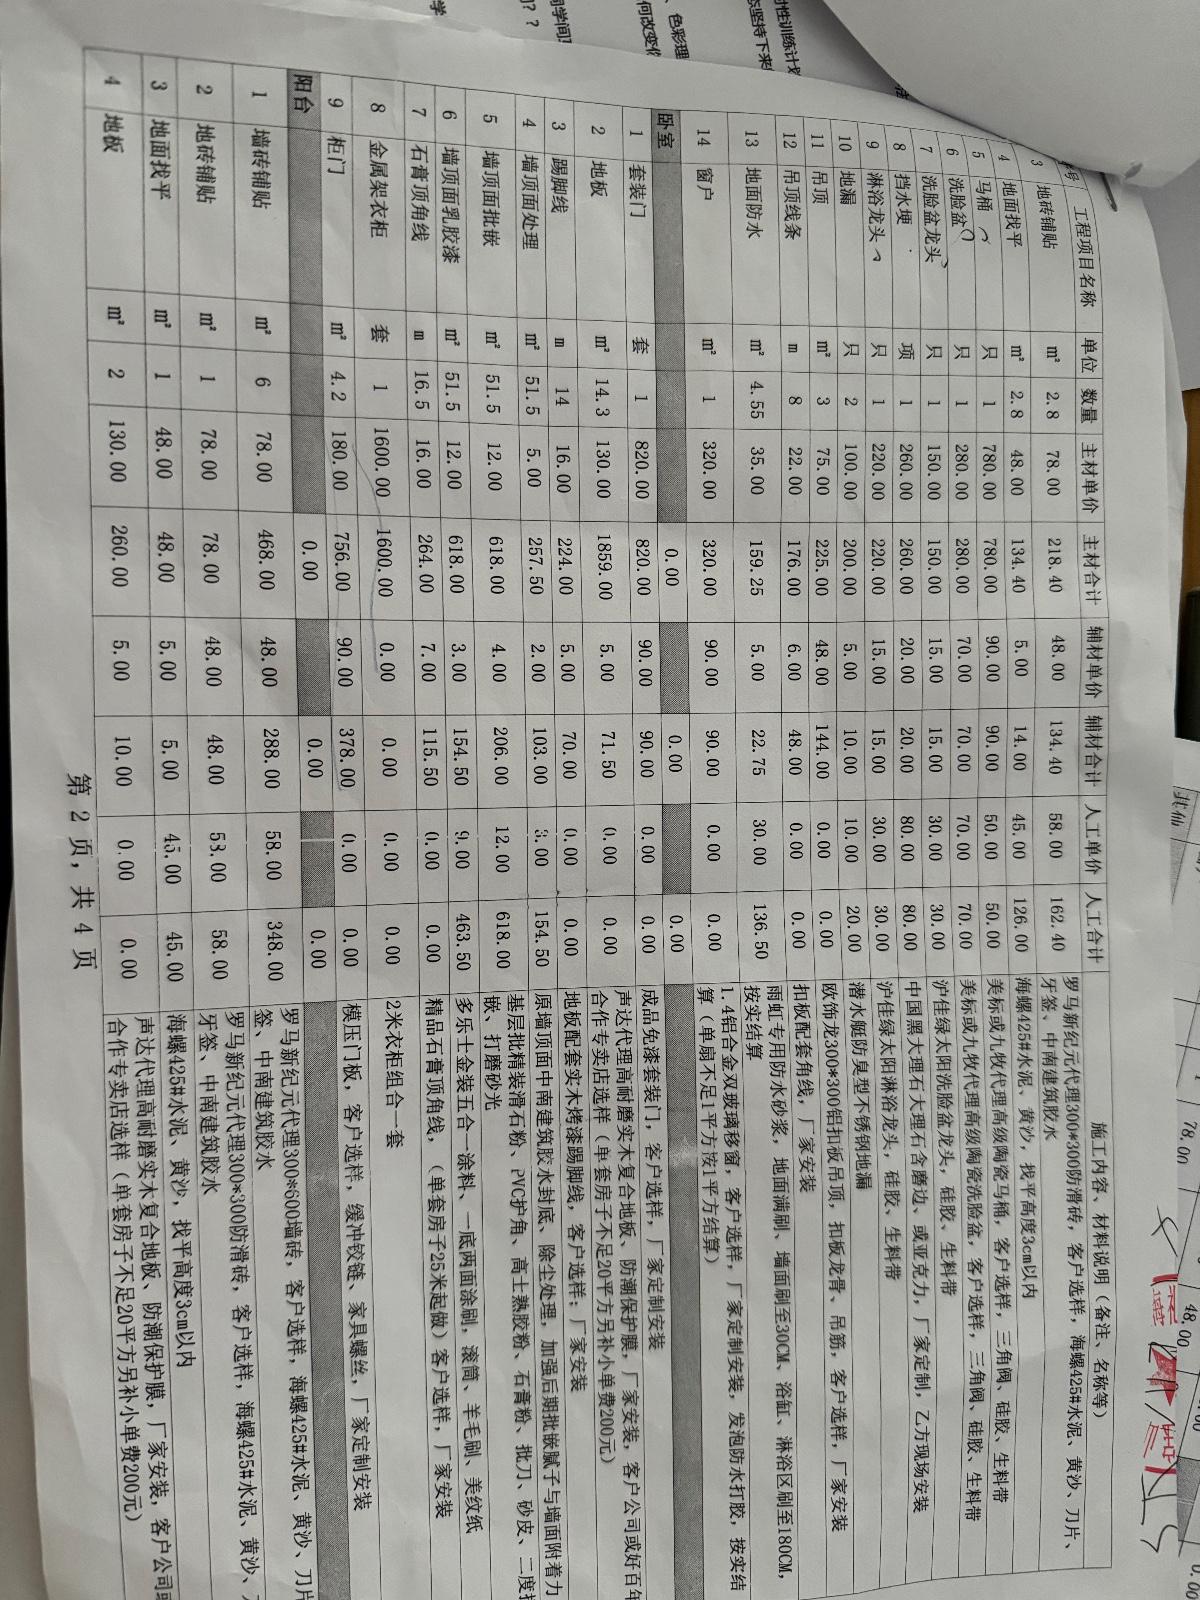 序号 工程项目名称 单位 数量 主材单价 主材合计 辅材单价 辅材合计 人工单价 人工合计 施工内容、材料说明（备注、名称等）
3 地砖铺贴 m² 2.8 78.00 218.40 48.00 134.40 58.00 162.40 罗马新纪元代理300*300防滑砖，客户选样，海螺425#水泥、黄沙、刀片、
牙签、中南建筑胶水
4 地面找平 m² 2.8 48.00 134.40 5.00 14.00 45.00 126.00 海螺425#水泥、黄沙，找平高度3cm以内
5 马桶 只 1 780.00 780.00 90.00 90.00 50.00 50.00 美标或九牧代理高级陶瓷马桶，客户选样，三角阀、硅胶、生料带
6 洗脸盆 只 1 280.00 280.00 70.00 70.00 70.00 70.00 美标或九牧代理高级陶瓷洗脸盆，客户选样，三角阀、硅胶、生料带
7 洗脸盆龙头 只 1 150.00 150.00 15.00 15.00 30.00 30.00 沪佳绿太阳洗脸盆龙头，硅胶、生料带
8 挡水埂 项 1 260.00 260.00 20.00 20.00 80.00 80.00 中国黑大理石大理石含磨边、或亚克力，厂家定制，乙方现场安装
9 淋浴龙头 只 1 220.00 220.00 15.00 15.00 30.00 30.00 沪佳绿太阳淋浴龙头，硅胶、生料带
10 地漏 只 2 100.00 200.00 5.00 10.00 10.00 20.00 潜水艇防臭型不锈钢地漏
11 吊顶 m² 3 75.00 225.00 48.00 144.00 0.00 0.00 欧饰龙300*300铝扣板吊顶，扣板龙骨、吊筋，客户选样，厂家安装
12 吊顶线条 m 8 22.00 176.00 6.00 48.00 0.00 0.00 扣板配套角线，厂家安装
13 地面防水 m² 4.55 35.00 159.25 5.00 22.75 30.00 136.50 雨虹专用防水砂浆，地面满刷、墙面刷至30CM、浴缸、淋浴区刷至180CM，
按实结算
14 窗户 m² 1 320.00 320.00 90.00 90.00 0.00 0.00 1.4铝合金双玻璃移窗，客户选样，厂家定制安装，发泡防水打胶，按实结
算（单扇不足1平方按1平方结算）
卧室 0.00 0.00 0.00
1 套装门 套 1 820.00 820.00 90.00 90.00 0.00 0.00 成品免漆套装门，客户选样，厂家定制安装
2 地板 m² 14.3 130.00 1859.00 5.00 71.50 0.00 0.00 声达代理高耐磨实木复合地板、防潮保护膜，厂家安装，客户公司或好百年
合作专卖店选样（单套房子不足20平方另补小单费200元）
3 踢脚线 m 14 16.00 224.00 5.00 70.00 0.00 0.00 地板配套实木烤漆踢脚线，客户选样；厂家安装
4 墙顶面处理 m² 51.5 5.00 257.50 2.00 103.00 3.00 154.50 原墙顶面中南建筑胶水封底、除尘处理，加强后期批嵌腻子与墙面附着力
5 墙顶面批嵌 m² 51.5 12.00 618.00 4.00 206.00 12.00 618.00 基层批精装滑石粉、PVC护角、高士熟胶粉、石膏粉、批刀、砂皮、二度批
嵌、打磨砂光
6 墙顶面乳胶漆 m² 51.5 12.00 618.00 3.00 154.50 9.00 463.50 多乐士金装五合一涂料、一底两面涂刷，滚筒、羊毛刷、美纹纸
7 石膏顶角线 m 16.5 16.00 264.00 7.00 115.50 0.00 0.00 精品石膏顶角线，（单套房子25米起做）客户选样，厂家安装
8 金属架衣柜 套 1 1600.00 1600.00 0.00 0.00 0.00 0.00 2米衣柜组合一套
9 柜门 m² 4.2 180.00 756.00 90.00 378.00 0.00 0.00 模压门板，客户选样，缓冲铰链、家具螺丝，厂家定制安装
阳台 0.00 0.00 0.00
1 墙砖铺贴 m² 6 78.00 468.00 48.00 288.00 58.00 348.00 罗马新纪元代理300*600墙砖，客户选样，海螺425#水泥、黄沙、刀片
签、中南建筑胶水
2 地砖铺贴 m² 1 78.00 78.00 48.00 48.00 58.00 58.00 罗马新纪元代理300*300防滑砖，客户选样，海螺425#水泥、黄沙、
牙签、中南建筑胶水
3 地面找平 m² 1 48.00 48.00 5.00 5.00 45.00 45.00 海螺425#水泥、黄沙，找平高度3cm以内
4 地板 m² 2 130.00 260.00 5.00 10.00 0.00 0.00 声达代理高耐磨实木复合地板、防潮保护膜，厂家安装，客户公司或
合作专卖店选样（单套房子不足20平方另补小单费200元）
第 2 页，共 4 页
其他
78.00
48.00
0.00